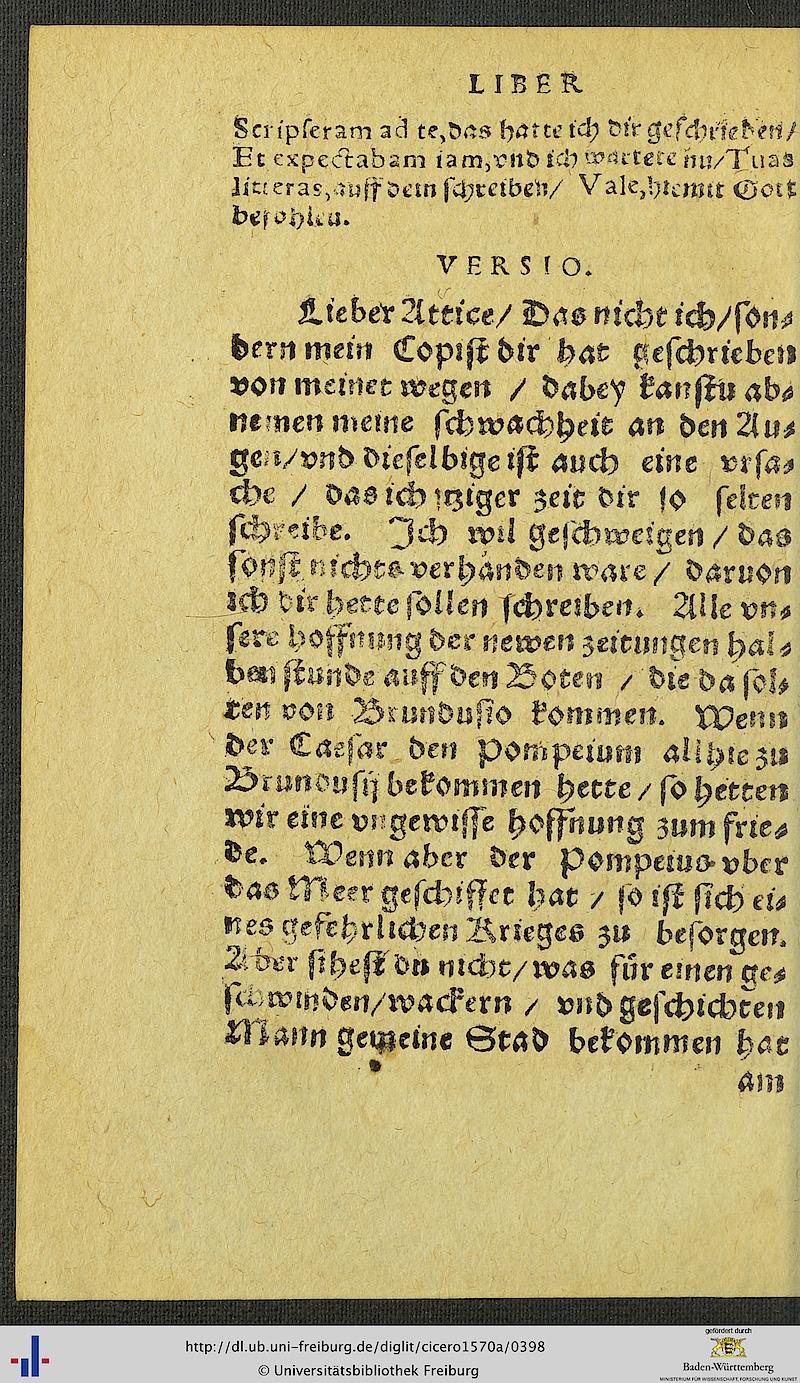 LIBER
Scripſeram ad te, das hatte ich dir geſchrieben/
Et expectabam iam, vnd ich wartete nu/ Tuas
litteras, auff dein ſchreiben/ Vale, hiemit Gott
befohlen.
VERSIO.
Lieber Attice/ Das nicht ich/ ſon⸗
dern mein Copiſt dir hat geſchrieben
von meinet wegen / dabey kanſtu ab⸗
nemen meine ſchwachheit an den Au⸗
gen/ vnd dieſelbige iſt auch eine vrſa⸗
che / das ich itziger zeit dir ſo ſelten
ſchreibe. Ich wil geſchweigen / das
ſonſt nichts verhanden ware / daruon
ich dir hette ſollen ſchreiben. Alle vn⸗
ſere hoffnung der newen zeitungen hal⸗
ben ſtunde auff den Boten / die da ſol⸗
ten von Brunduſio kommen. Wenn
der Caeſar den Pompeium allhie zu
Brunduſij bekommen hette / ſo hetten
wir eine vngewiſſe hoffnung zum frie⸗
de. Wenn aber der Pompeius vber
das Meer geſchiffet hat / ſo iſt ſich ei⸗
nes gefehrlichen Krieges zu beſorgen.
Aber ſiheſt du nicht/ was für einen ge⸗
ſchwinden/ wackern / vnd geſchichten
Mann gemeine Stad bekommen hat
am
http://dl.ub.uni-freiburg.de/diglit/cicero1570a/0398
© Universitätsbibliothek Freiburg
gefördert durch
Baden-Württemberg
MINISTERIUM FÜR WISSENSCHAFT, FORSCHUNG UND KUNST